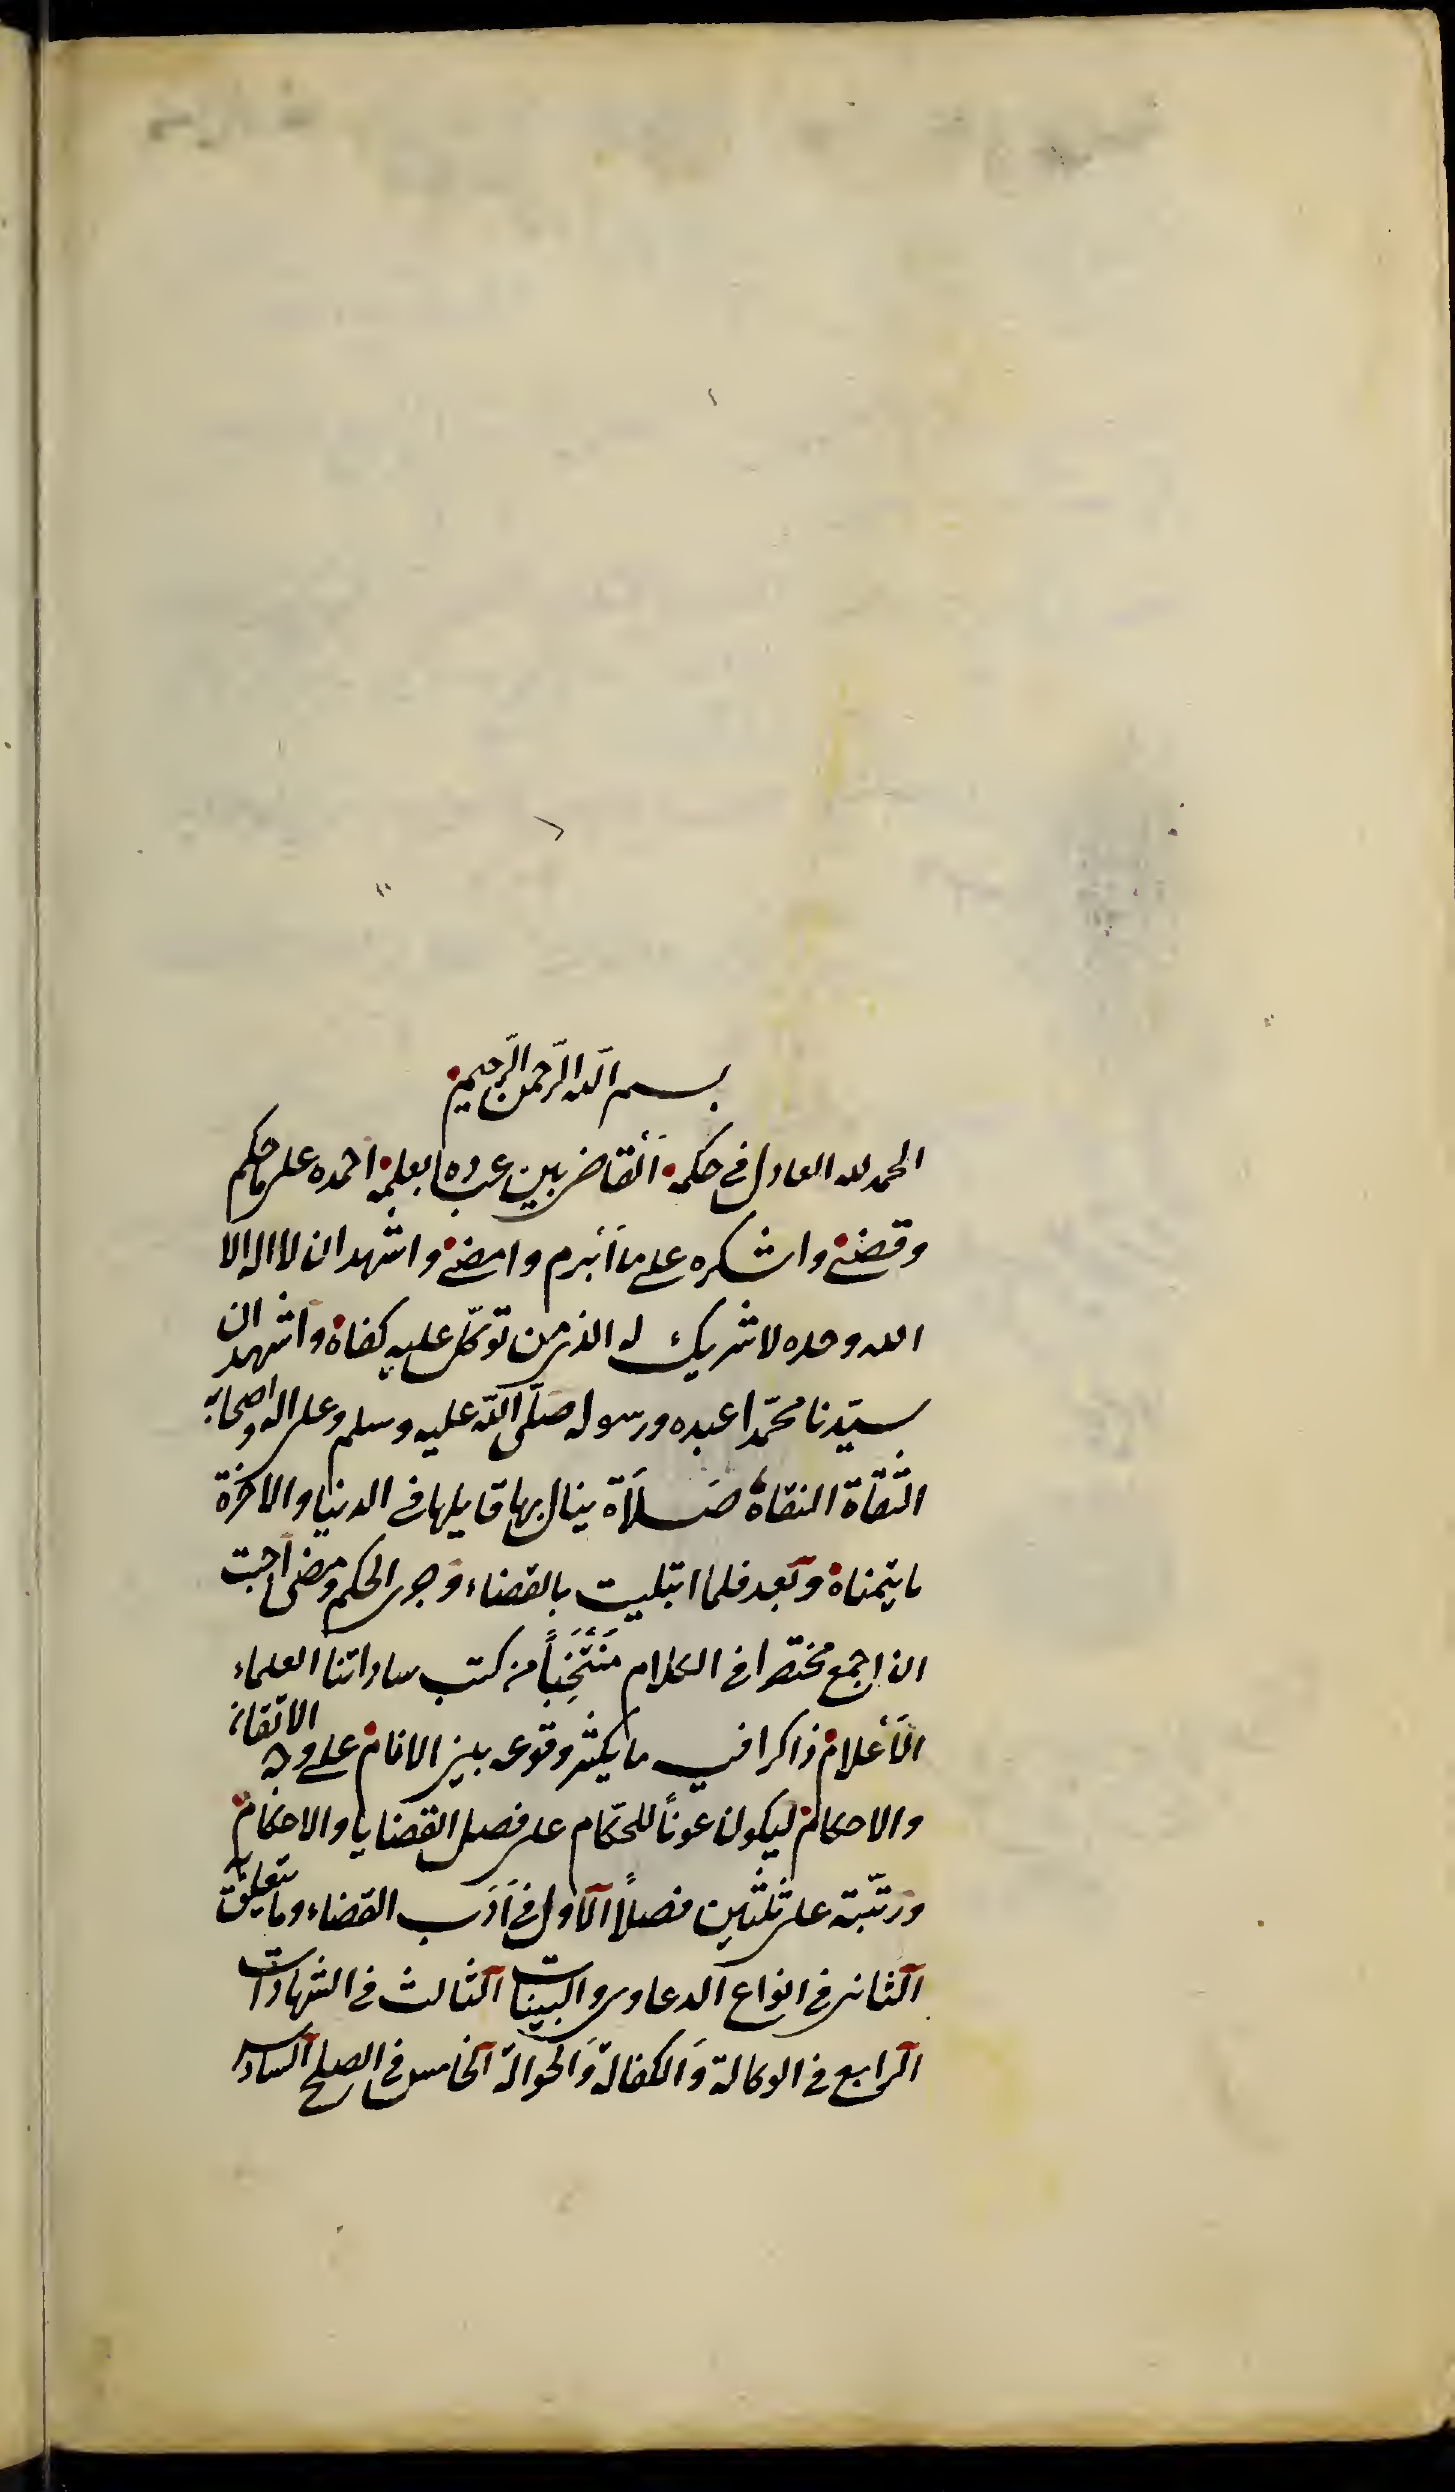 بسم الله الرحمن الرحيم
الحمد لله العادل في حكمه القاضي بين عباده بعلمه احمده على ما حكم
وقضى واشكره على ما أبرم وامضى واشهد ان لا اله الا
الله وحده لا شريك له الذي من توكّل عليه كفاه واشهد ان
سيّدنا محمّدا عبده ورسوله صلّى الله عليه وسلم وعلى اله واصحابه
الثقاة النقاة صلاة ينال بها قايلها في الدنيا والاخرة
ما يتمناه وبعد فلما ابتليت بالقضاء وجرى الحكم ومضى احببت
ان اجمع مختصرا في الكلام مُنْتَخَباً من كتب ساداتنا العلماء
الأعلام ذاكرا فيه ما يكثر وقوعه بين الانام على وجه الاتقان
والاحكام ليكون عوناً للحكّام على فصل القضايا والاحكام
ورتّبته على ثلثين فصلاً الاول في أدب القضاء وما يتعلق به
الثاني في انواع الدعاوى والبينات الثالث في الشهادات
الرابع في الوكالة والكفالة والحوالة الخامس في الصلح السادس